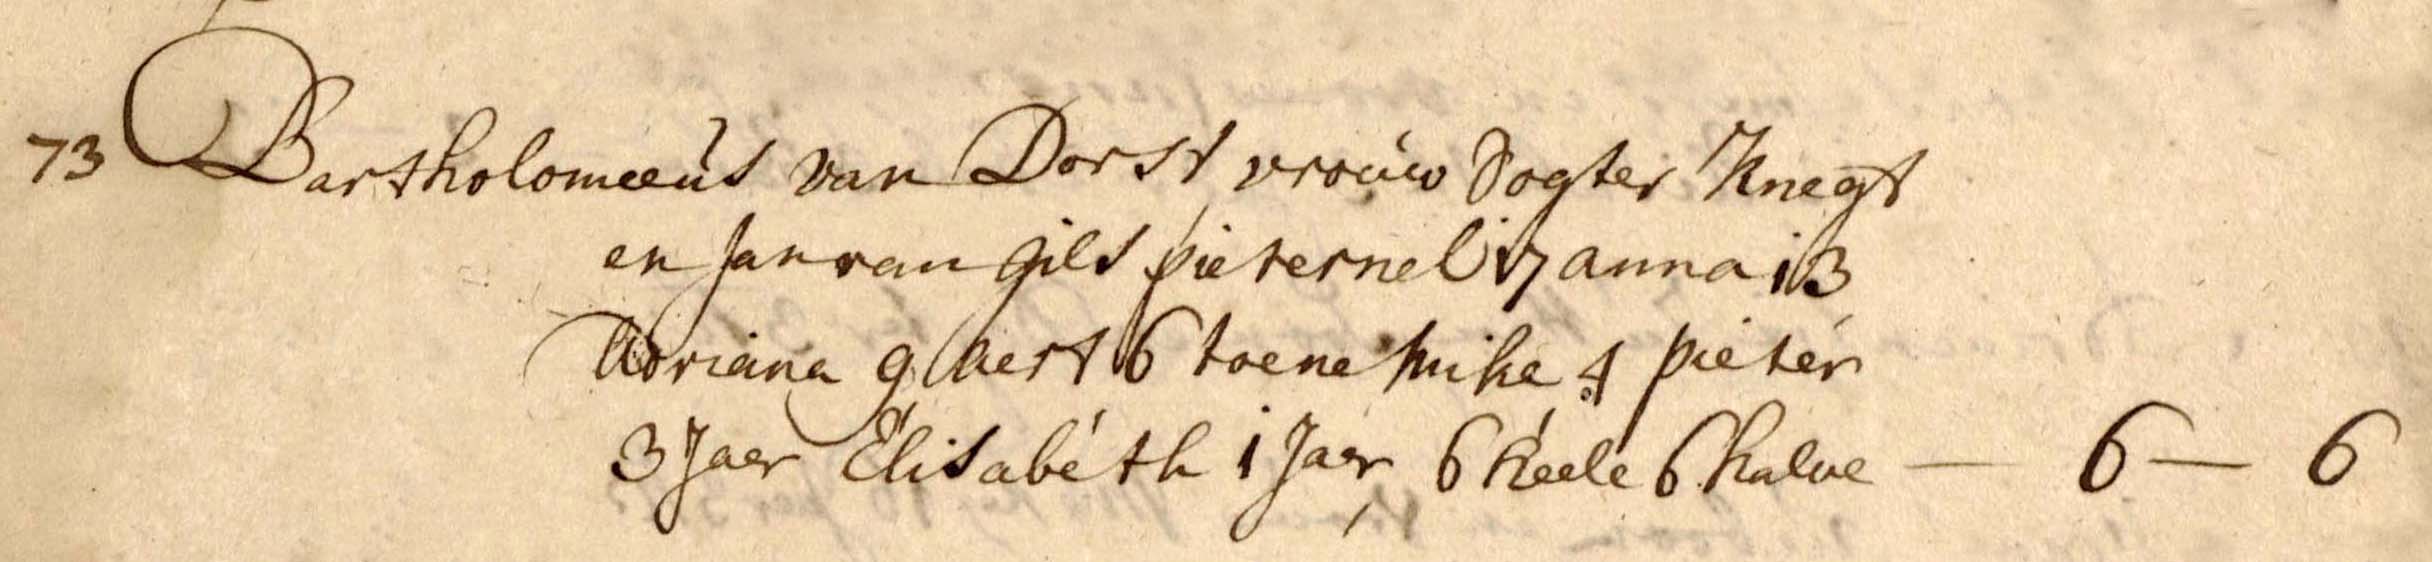 73 Bartholomeeus van Dorst vrouw Dogter Knegt
en Jan van gils pieternel 17 anna 13
Adriana 9 Aert 6 toene mike 4 pieter
3 Jaer Elisabeth 1 Jaer 6 heele 6 halve — 6 — 6